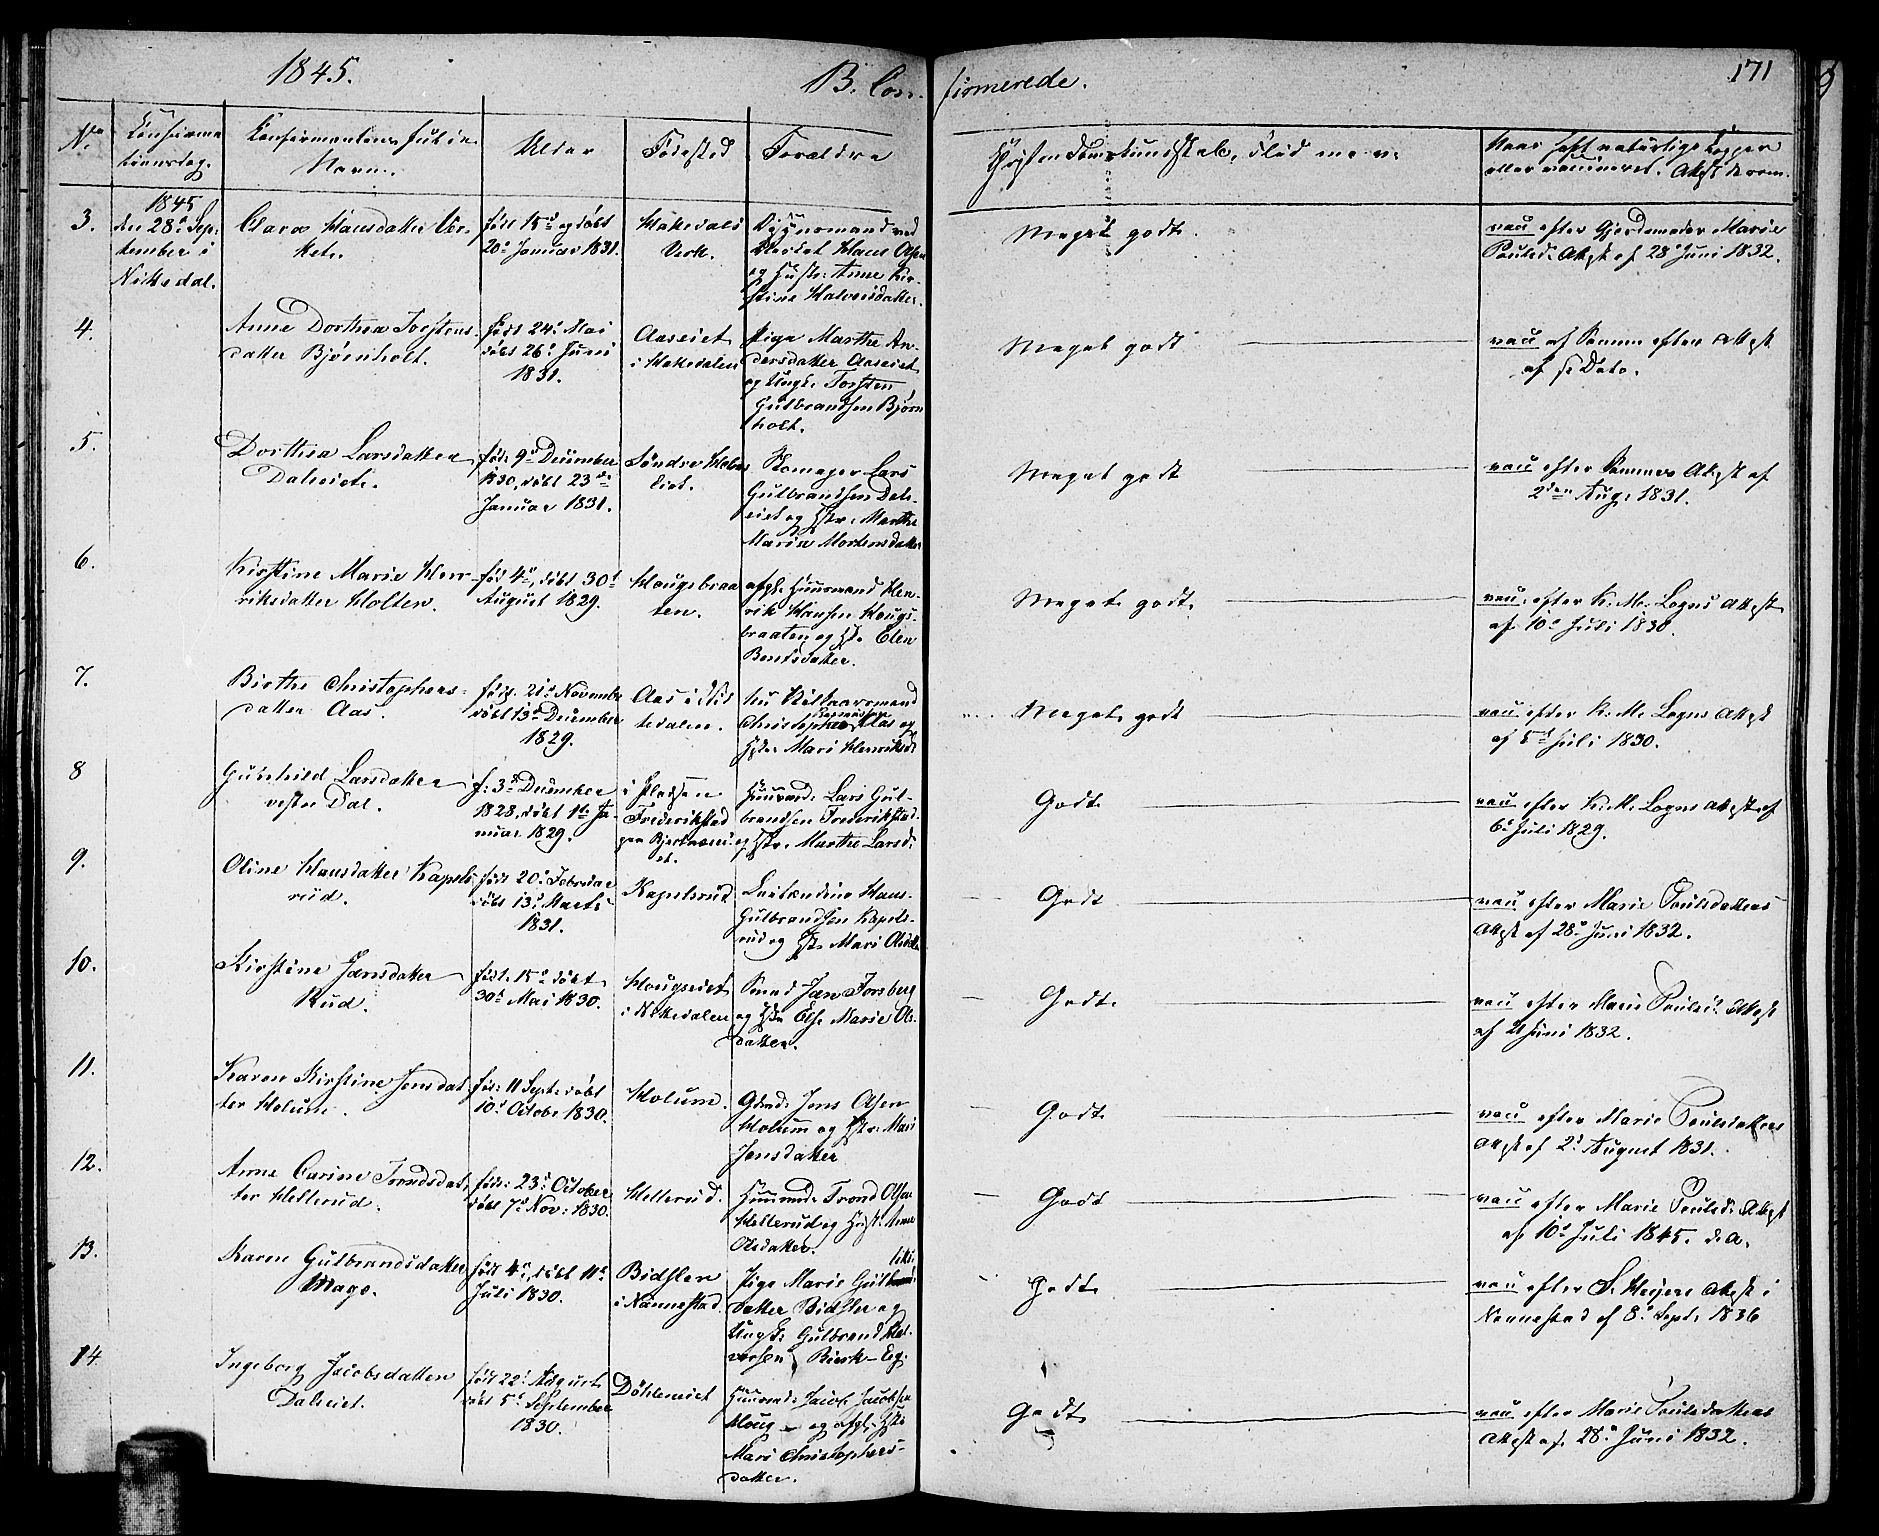 1845.
B. Confirmerede.
171
No
Confirma
tionsdag.
Confirmantens fulde
Navn.
Alder
Fødested
Forældre
Christendomskundskab, Flid m. v.
Naar havt naturlige Kopper
eller vaccineret. Attest derom.
3.
1845
den 28de Sep-
tember i
Nittedal.
Clara Hansdatter Ver-
ket.
født 15de og døbt
20de Januar 1831.
Hakedals
Verk.
ved
Verket Hans Olsen
og Hustr. Anne Kir-
stine Halvorsdatter.
Meget godt.
vac. efter Gjordemoder Marie
Poulsd. Attest af 28de Juni 1832.
4.
Anne Dorthea Torstens-
datter Bjørnholt.
født 24de Mai
døbt 26de Juni
1831.
Aaseiet
i Hakedalen
Pige Marthe An-
dersdatter Aaseiet
og Ungk. Torsten
Gulbrandsen Bjørn
holt.
Meget godt
vac. af Samme efter Attest
af s. Dato.
5.
Dorthea Larsdatter
Daleiet.
fød. 9de December
1830, døbt 23de
Januar 1831.
Søndre
eiet.
Skomager Lars
Gulbrandsen Dals-
eiet og Hstr. Marthe
Maria Mortensdatter
Meget godt
vac. efter Sammes Attest af
2den Aug. 1831.
6.
Kirstine Marie Hen-
riksdatter Holter.
fød 4de, døbt 30te
August 1829.
Hougsbraa
ten.
afgl. Huusmand Hen-
rik Hansen Hougs-
braaten og H. Elen
Berntsdatter.
Meget godt.
vac. efter K. M. Logns Attest
af 10de Juli 1830.
7.
Birthe Christophers-
datter Aas.
født. 21de November
døbt 13de December
1829.
Aas i Nit
tedalen.
Christopher Aas og
Hstr. Mari Henriksd.
Meget godt
vac. efter K. M. Logns Attest
af 5te Juli 1830.
8
Gunhild Larsdatter
vestre Dal.
f: 3de December
1828, døbt 1te Ja-
nuar 1829.
i Pladsen
Frederikstad
Huusmd. Lars Gul-
brandsen Frederikstad
og Hstr. Marthe Larsd.
Godt
vac. efter K. M. Logns Attest af
6te Juli 1829.
9.
Oline Hansdatter Kapels
rud.
født 20de Februar
døbt 13de Marts
1831.
Kapelsrud
Leilænding Hans
Gulbrandsen Kapels-
rud og Hstr. Mari Olsdatter
Godt
vac. efter Marie Poulsdatters
Attest af 28de Juni 1832.
10.
Kirstine Jansdatter
Rud.
født. 15de døbt
30te Mai 1830.
Hougseiet
i Nittedalen
Smed Jan Forsberg
og Hstr. Else Marie Ols-
datter.
Godt.
vac. efter Marie Poulsd. Attest
af 21 Juni 1832.
11.
Karen Kirstine Jensdat-
ter Holum.
fød: 11 Sept. døbt
10de Octobr 1830.
Holum.
Gdmd. Jens Olsen
Holum og Hstr. Mari
Jensdatter
Godt
vac. efter Marie Poulsdatters
Attest af 2de August 1831.
12.
Anne Carine Trondsdat-
ter Hellerud.
fød: 23de October
døbt 7de Nov: 1830.
Hellerud.
Huusmd. Trond Olsen
Hellerud og Hust. Anne
Olsdatter.
Godt
vac. efter Marie Poulsd. Attest
af 10de Juli 1845. d. A.
13.
Karen Gulbrandsdatter
Mago.
født 4de, døbt 11te
Juli 1830.
Bidsler
i Nannestad.
Pige Marie Gulbrands-
datter Bidsler og
Ungk: Gulbrand Hal-
vorsen Biersk-Eg.
Godt
vac. efter S. Heijers Attest i
Nannestad af 8de Septr 1836
14.
Ingeborg Jacobsdatter
Daleiet.
født 22de August
døbt 5te September
1830.
Døhleneiet
Huusmd: Jacob Jacobsen
Houg og afgl. Hstr.
Mari Christophers-
datter.
Godt
vac. efter Marie Poulsdatters
Attest af 28de Juni 1832.